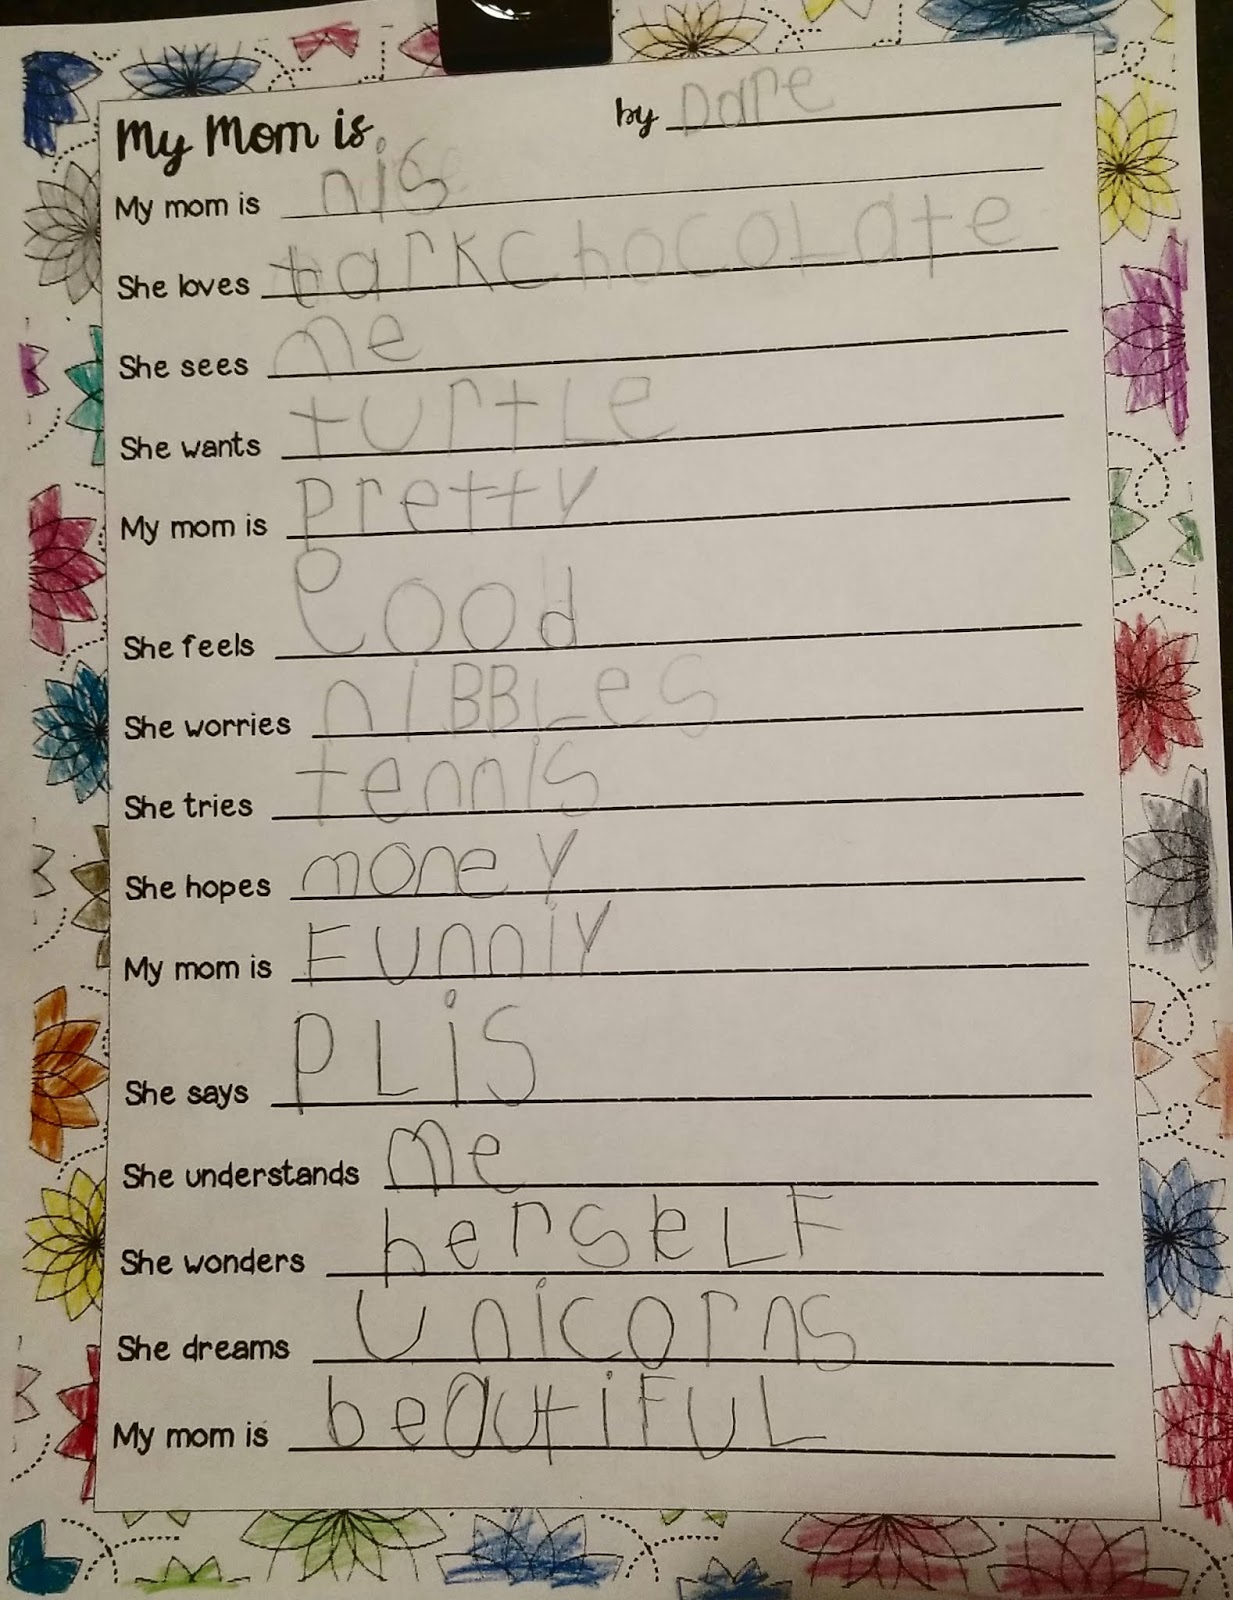 My Mom is
by Dare
My mom is nis
She loves barkchocolate
She sees me
She wants turtle
My mom is pretty
She feels good
She worries nibbles
She tries tennis
She hopes money
My mom is Funniy
She says PLiS
She understands me
She wonders herself
She dreams unicorns
My mom is beautiful